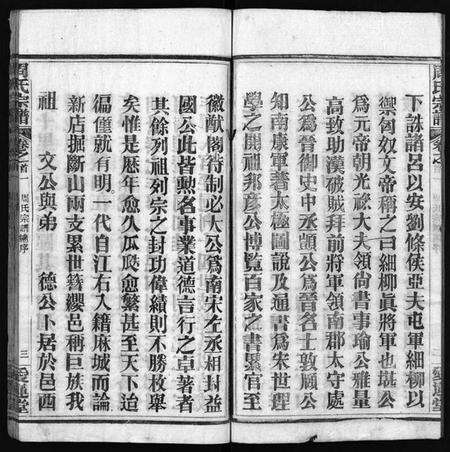 下誅諸呂以安劉條侯亞夫屯軍細柳以
禦匈奴文帝稱之曰細柳眞將軍也堪公
爲元帝朝光祿大夫領尙書事瑜公雅量
高致助漢破賊拜前將軍領南郡太守處
公爲晉御史中丞顗公爲晉名士敦頤公
知南康軍著太極圖說及通書爲宋世理
學之開祖邦彥公博覽百家之書累官至
徽猷閣待制必大公爲南宋左丞相封益
國公此皆勲名事業道德言行之卓著者
其餘列祖列宗之封功偉績則不勝枚舉
矣惟是歷年愈久瓜瓞愈繁甚至天下迨
偏僅就有明一代自江右入籍麻城而論
新店掘斷山兩支累世簪纓邑稱巨族我
祖　文公與弟　德公卜居於邑西
周氏宗譜
卷之首
周氏宗譜總序
三
愛蓮堂